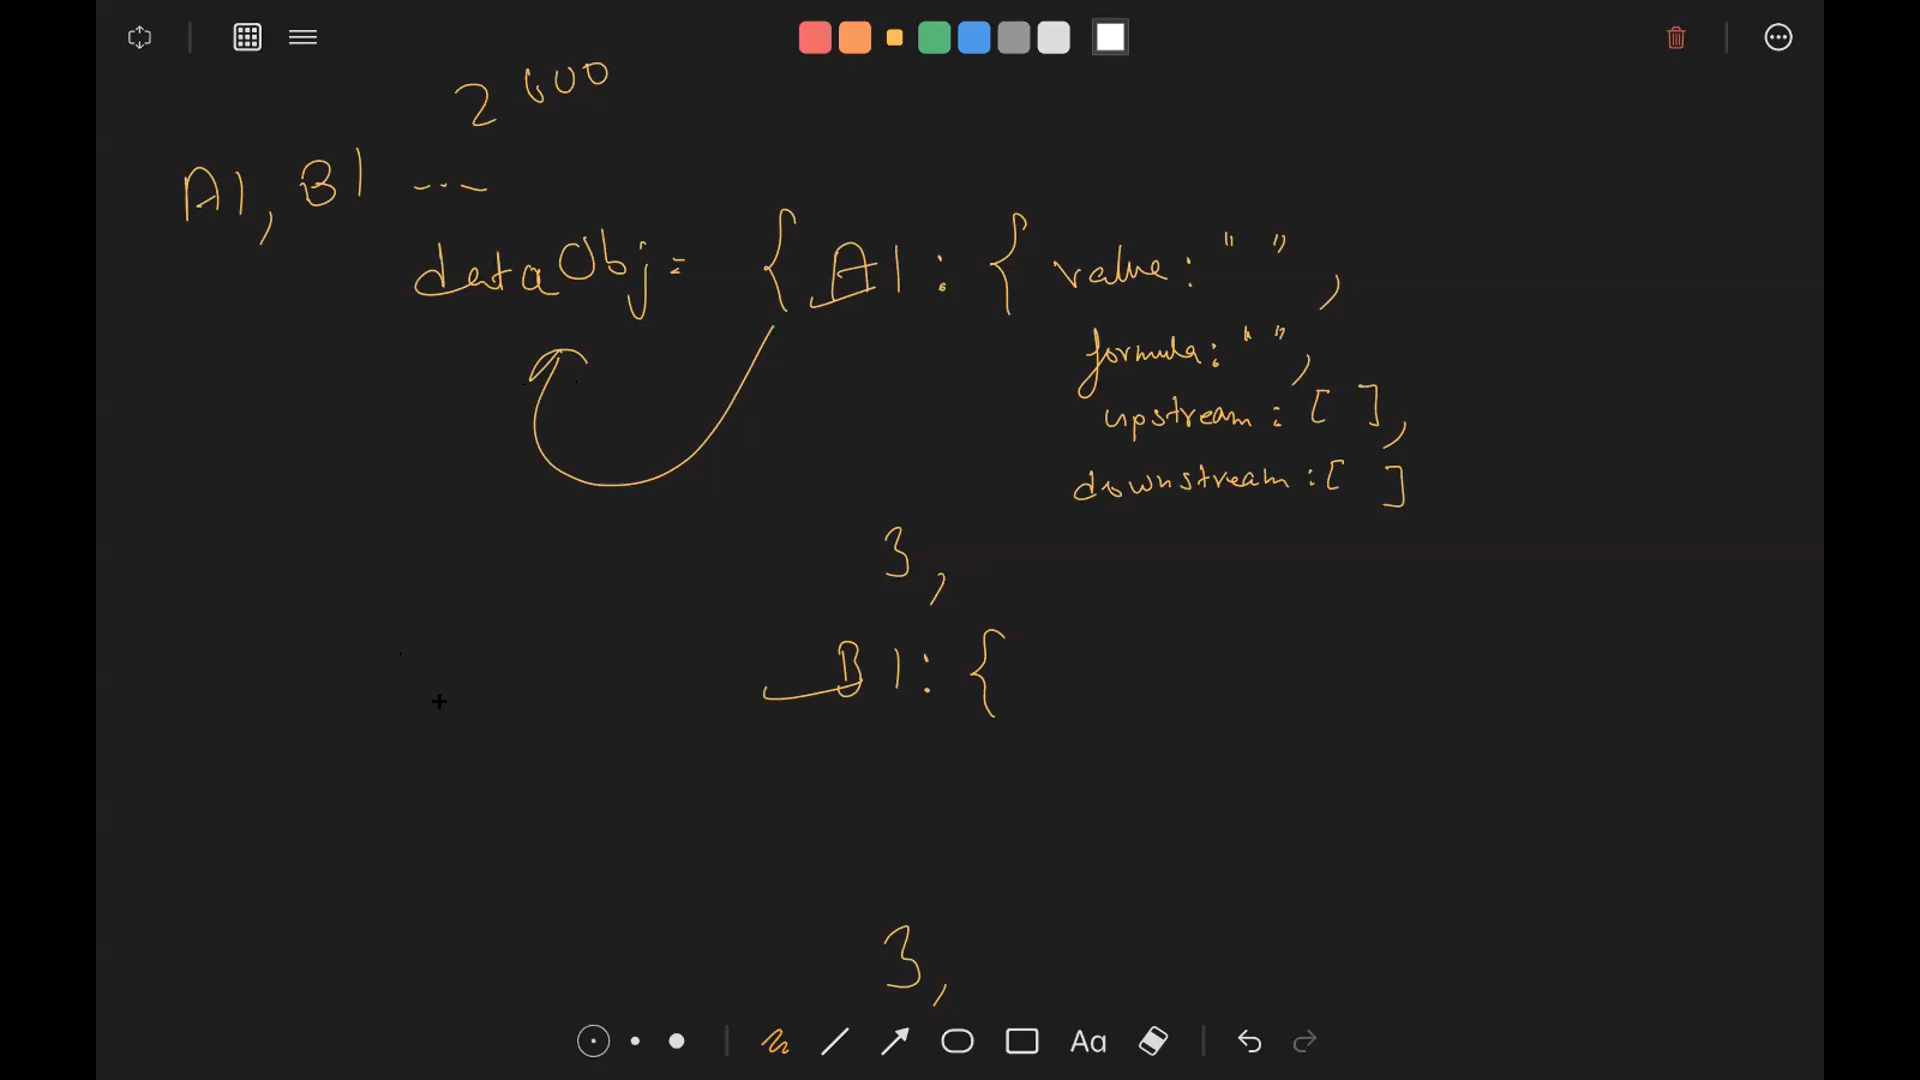 2600
A1, B1 ---
dataObj = { A1 : { value : " ",
formula : " ",
upstream : [ ],
downstream : [ ]
},
B1 : {
},
Aa